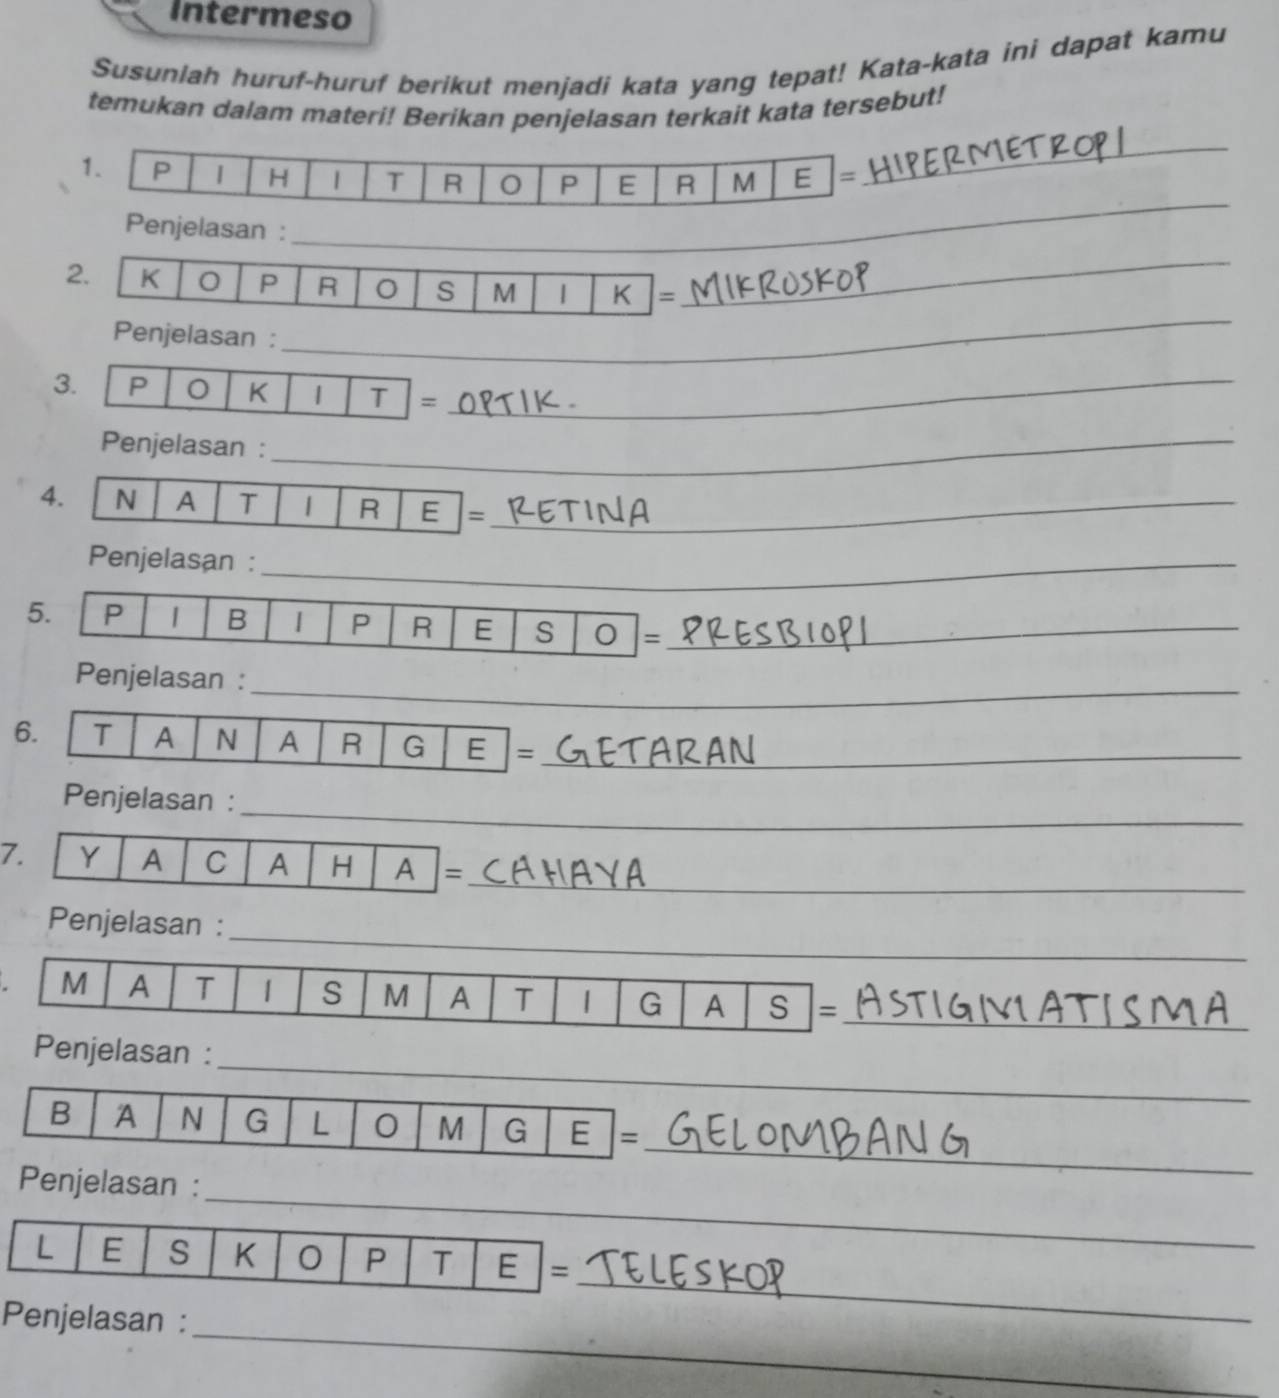 Intermeso
Susunlah huruf-huruf berikut menjadi kata yang tepat! Kata-kata ini dapat kamu
temukan dalam materi! Berikan penjelasan terkait kata tersebut!
1. P I H I T R O P E R M E = HIPERMETROPI
Penjelasan :
2. K O P R O S M I K = MIKROSKOP
Penjelasan :
3. P O K I T = OPTIK.
Penjelasan :
4. N A T I R E = RETINA
Penjelasan :
5. P I B I P R E S O = PRESBIOPI
Penjelasan :
6. T A N A R G E = GETARAN
Penjelasan :
7. Y A C A H A = CAHAYA
Penjelasan :
. M A T I S M A T I G A S = ASTIGMATISMA
Penjelasan :
B A N G L O M G E = GELOMBANG
Penjelasan :
L E S K O P T E = TELESKOP
Penjelasan :